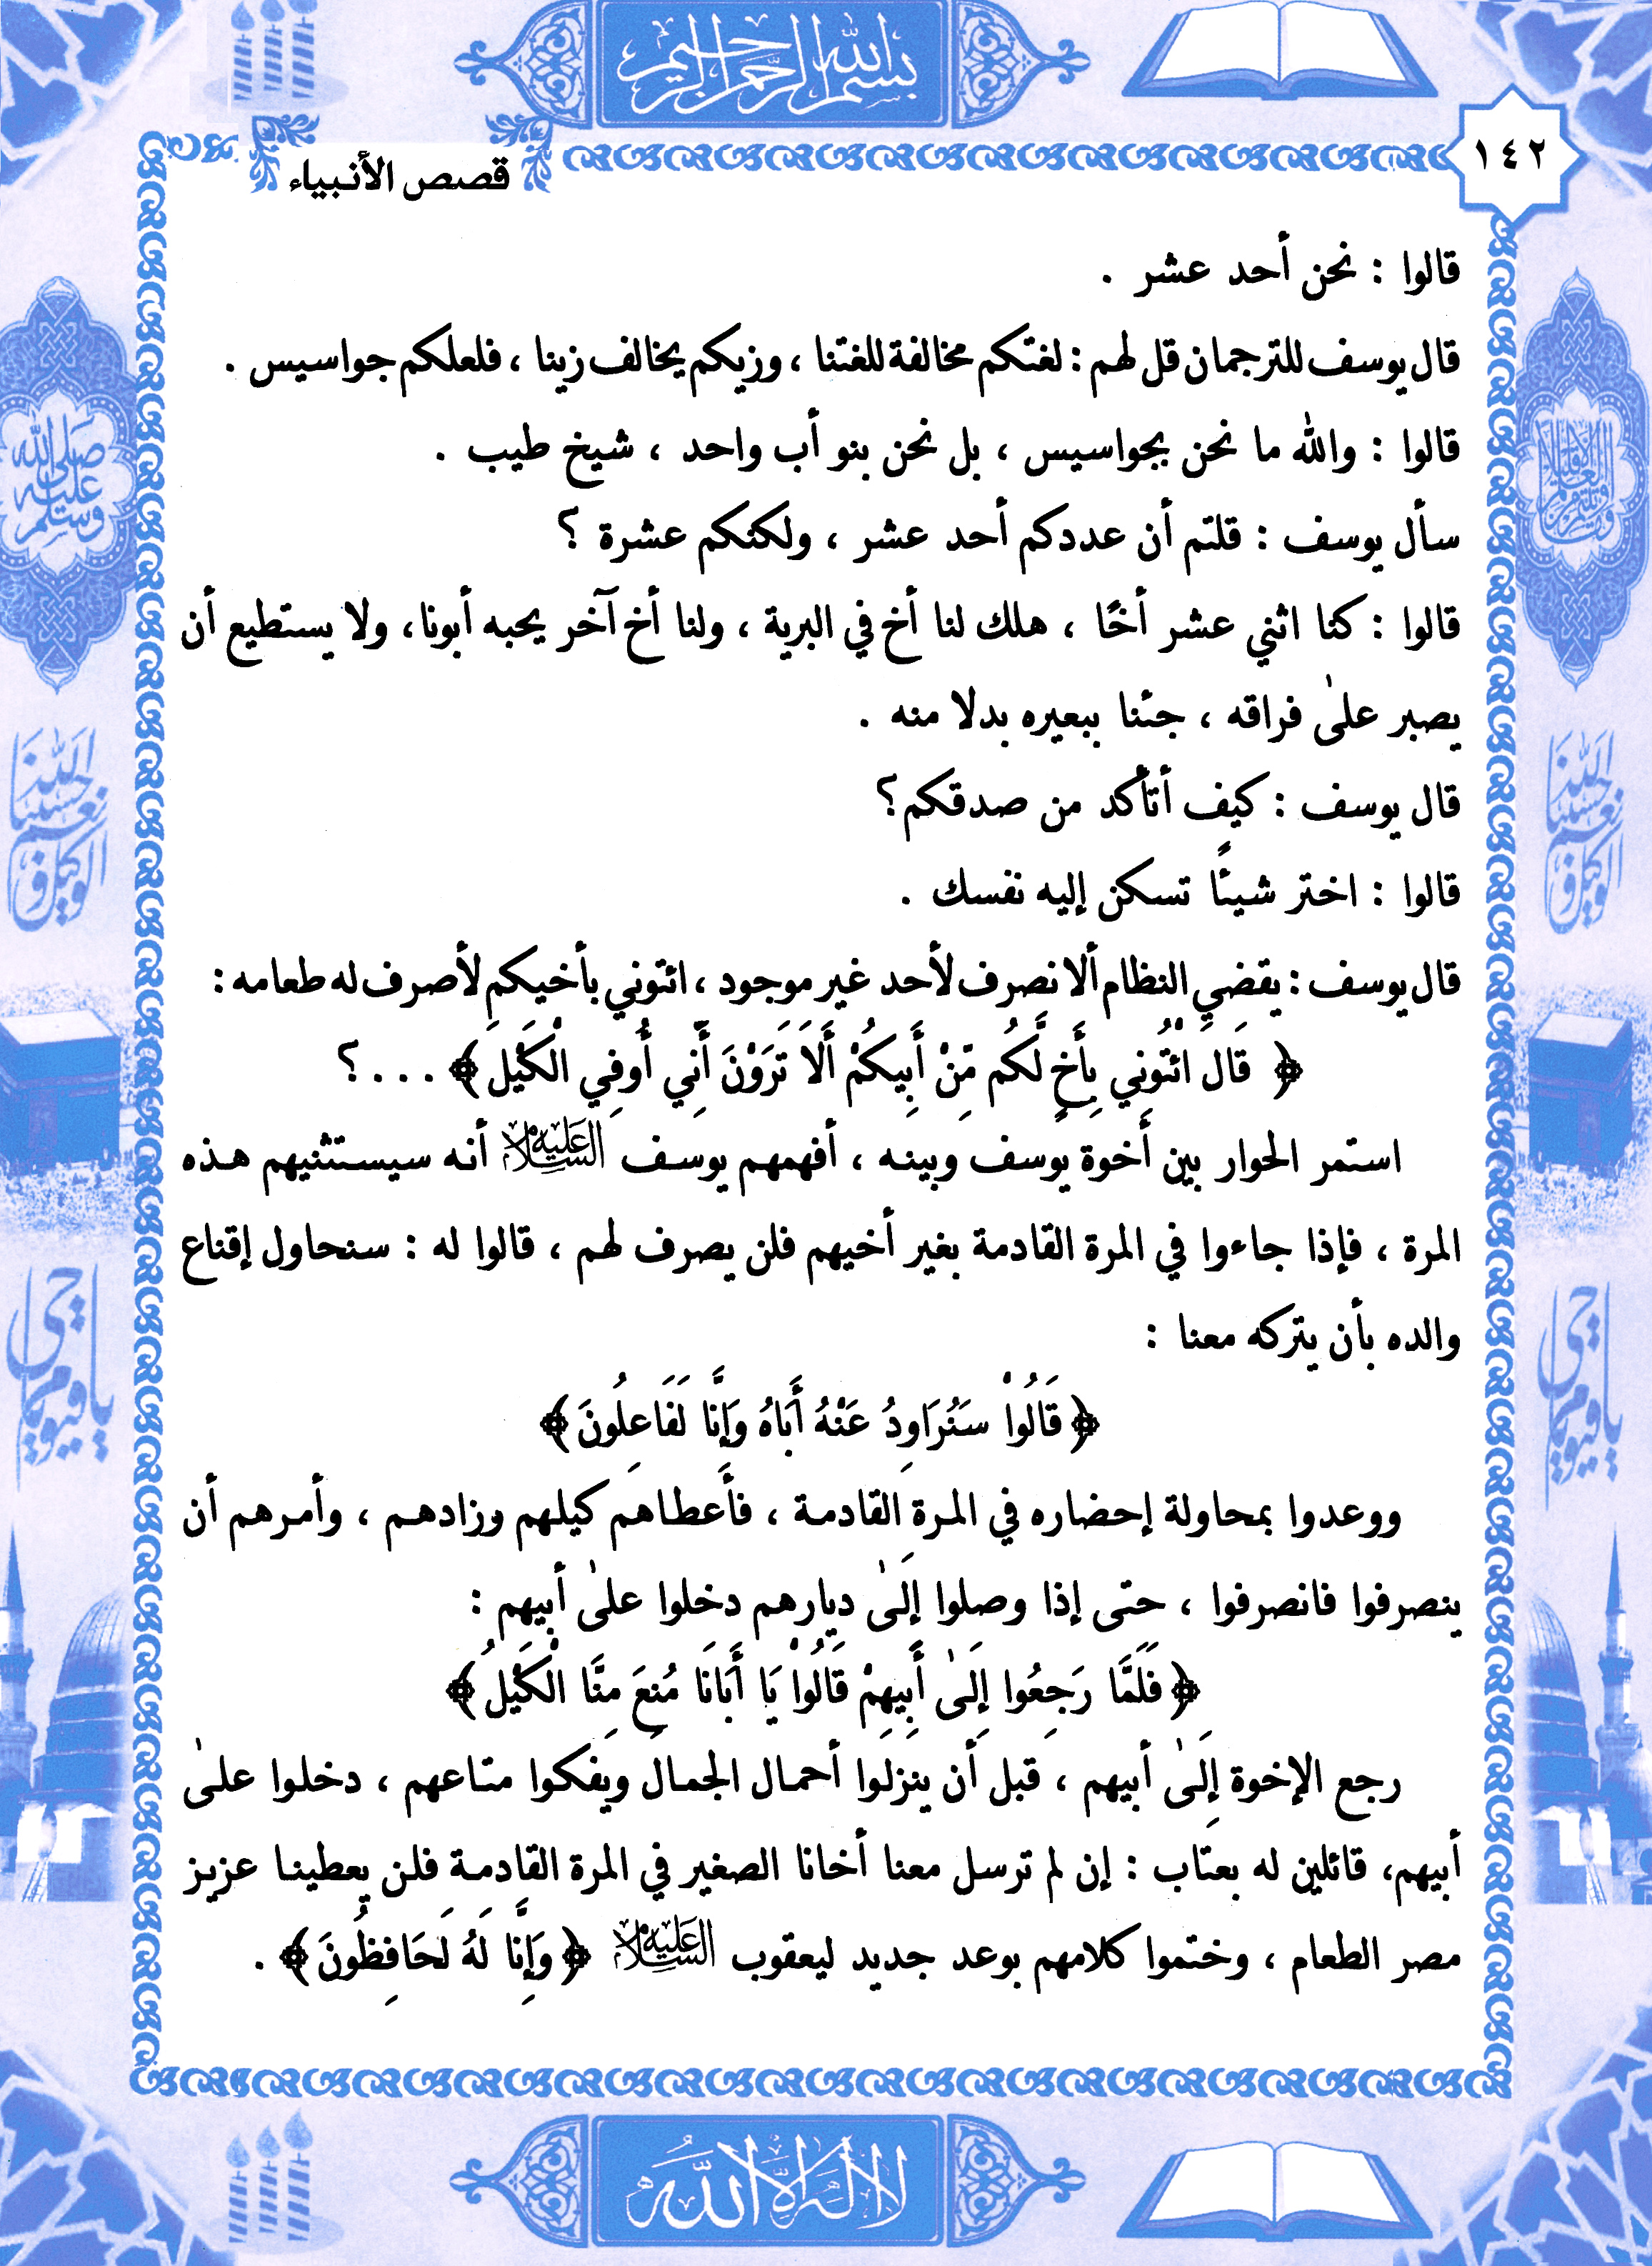 بسم الله الرحمن الرحيم
١٤٢
قصص الأنبياء
قالوا : نحن أحد عشر .
قال يوسف للترجمان قل لهم : لغتكم مخالفة للغتنا ، وزيكم يخالف زينا ، فلعلكم جواسيس .
قالوا : والله ما نحن بجواسيس ، بل نحن بنو أب واحد ، شيخ طيب .
سأل يوسف : قلتم أن عددكم أحد عشر ، ولكنكم عشرة ؟
قالوا : كنا اثني عشر أخًا ، هلك لنا أخ في البرية ، ولنا أخ آخر يحبه أبونا، ولا يستطيع أن
يصبر علىٰ فراقه ، جئنا ببعيره بدلا منه .
قال يوسف : كيف أتأكد من صدقكم؟
قالوا : اختر شيئًا تسكن إليه نفسك .
قال يوسف : يقضي النظام ألا نصرف لأحد غير موجود ، ائتوني بأخيكم لأصرف له طعامه :
﴿ قَالَ ائْتُونِي بِأَخٍ لَّكُم مِّنْ أَبِيكُمْ أَلاَ تَرَوْنَ أَنِّي أُوفِي الْكَيْلَ﴾ . . . ؟
استمر الحوار بين أخوة يوسف وبينه ، أفهمهم يوسف عليه السلام أنه سيستثنيهم هذه
المرة ، فإذا جاءوا في المرة القادمة بغير أخيهم فلن يصرف لهم ، قالوا له : سنحاول إقناع
والده بأن يتركه معنا :
﴿قَالُواْ سَنُرَاوِدُ عَنْهُ أَبَاهُ وَإِنَّا لَفَاعِلُونَ﴾
ووعدوا بمحاولة إحضاره في المرة القادمة ، فأعطاهم كيلهم وزادهم ، وأمرهم أن
ينصرفوا فانصرفوا ، حتى إذا وصلوا إِلَىٰ ديارهم دخلوا علىٰ أبيهم :
﴿فَلَمَّا رَجِعُوا إِلَىٰ أَبِيهِمْ قَالُواْ يَا أَبَانَا مُنِعَ مِنَّا الْكَيْلُ﴾
رجع الإخوة إِلَىٰ أبيهم ، قبل أن ينزلوا أحمال الجمال ويفكوا متاعهم ، دخلوا علىٰ
أبيهم، قائلين له بعتاب : إن لم ترسل معنا أخانا الصغير في المرة القادمة فلن يعطينا عزيز
مصر الطعام ، وختموا كلامهم بوعد جديد ليعقوب عليه السلام ﴿وَإِنَّا لَهُ لَحَافِظُونَ﴾ .
صلى الله عليه وسلم
حسبنا الله ونعم الوكيل
حسبنا الله ونعم الوكيل
يا حي يا قيوم
يا حي يا قيوم
لا إله إلا الله